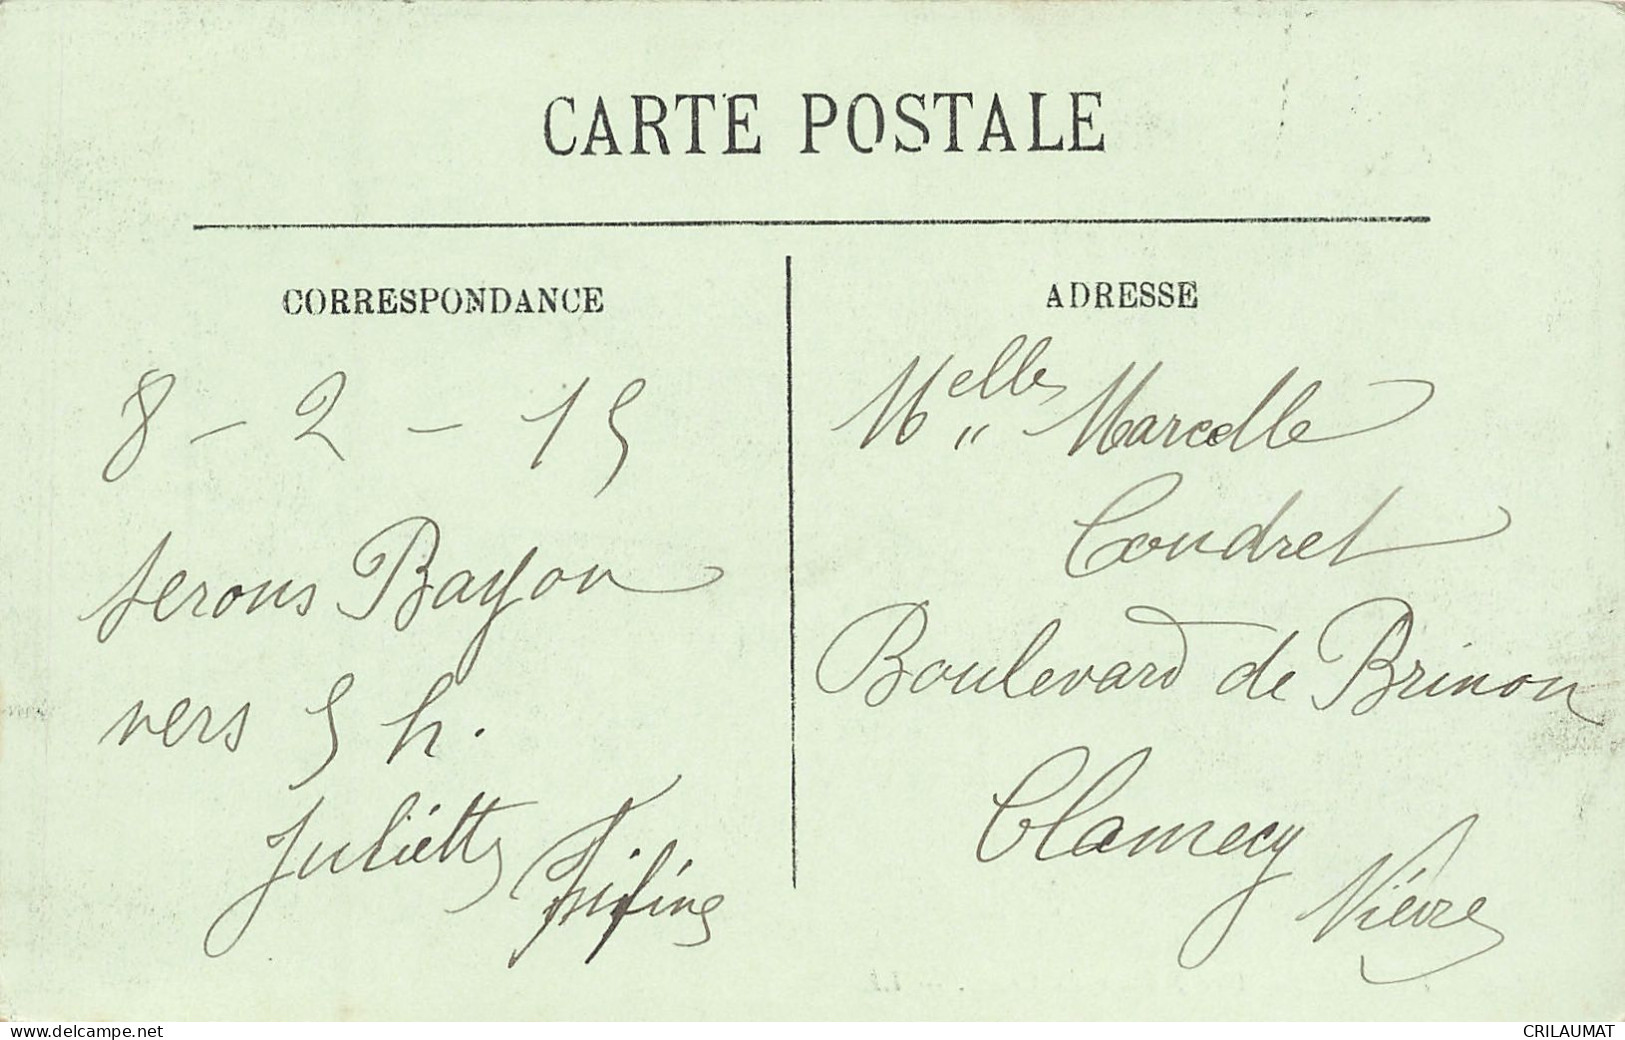 CARTE POSTALE
CORRESPONDANCE
8 - 2 - 15
serons Bayon
vers 5 h.
Juliette Fifine
ADRESSE
Melles Marcelle
Coudret
Boulevard de Brinon
Clamecy
Nièvre
www.delcampe.net
CRILAUMAT